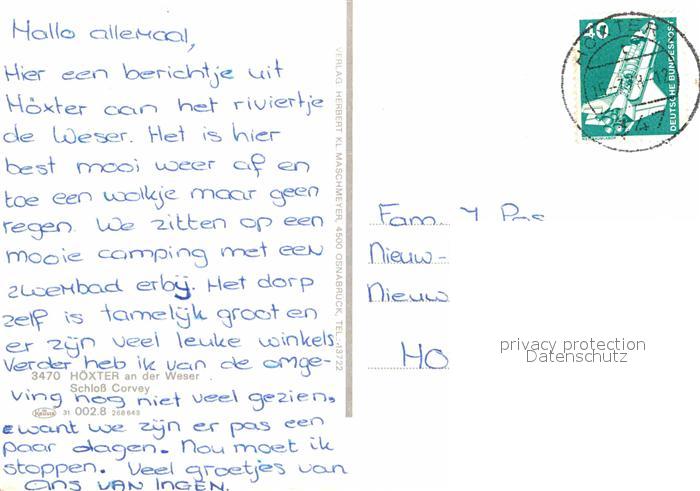 Hallo allemaal,
Hier een berichtje uit
Höxter aan het riviertje
de Weser. Het is hier
best mooi weer af en
toe een wolkje maar geen
regen. We zitten op een
mooie camping met een
zwembad erbij. Het dorp
zelf is tamelijk groot en
er zijn veel leuke winkels.
Verder heb ik van de omge-
3470 HÖXTER an der Weser
Schloß Corvey
ving nog niet veel gezien,
31 002.8 268643
want we zijn er pas een
paar dagen. Nou moet ik
stoppen. Veel groetjes van
Ans van Ingen.
VERLAG HERBERT KL. MASCHMEYER, 4500 OSNABRÜCK, TEL. 13722
40
DEUTSCHE BUNDESPOST
HÖXTER
Fam.
Nieuw-
Nieuw
HO
privacy protection
Datenschutz